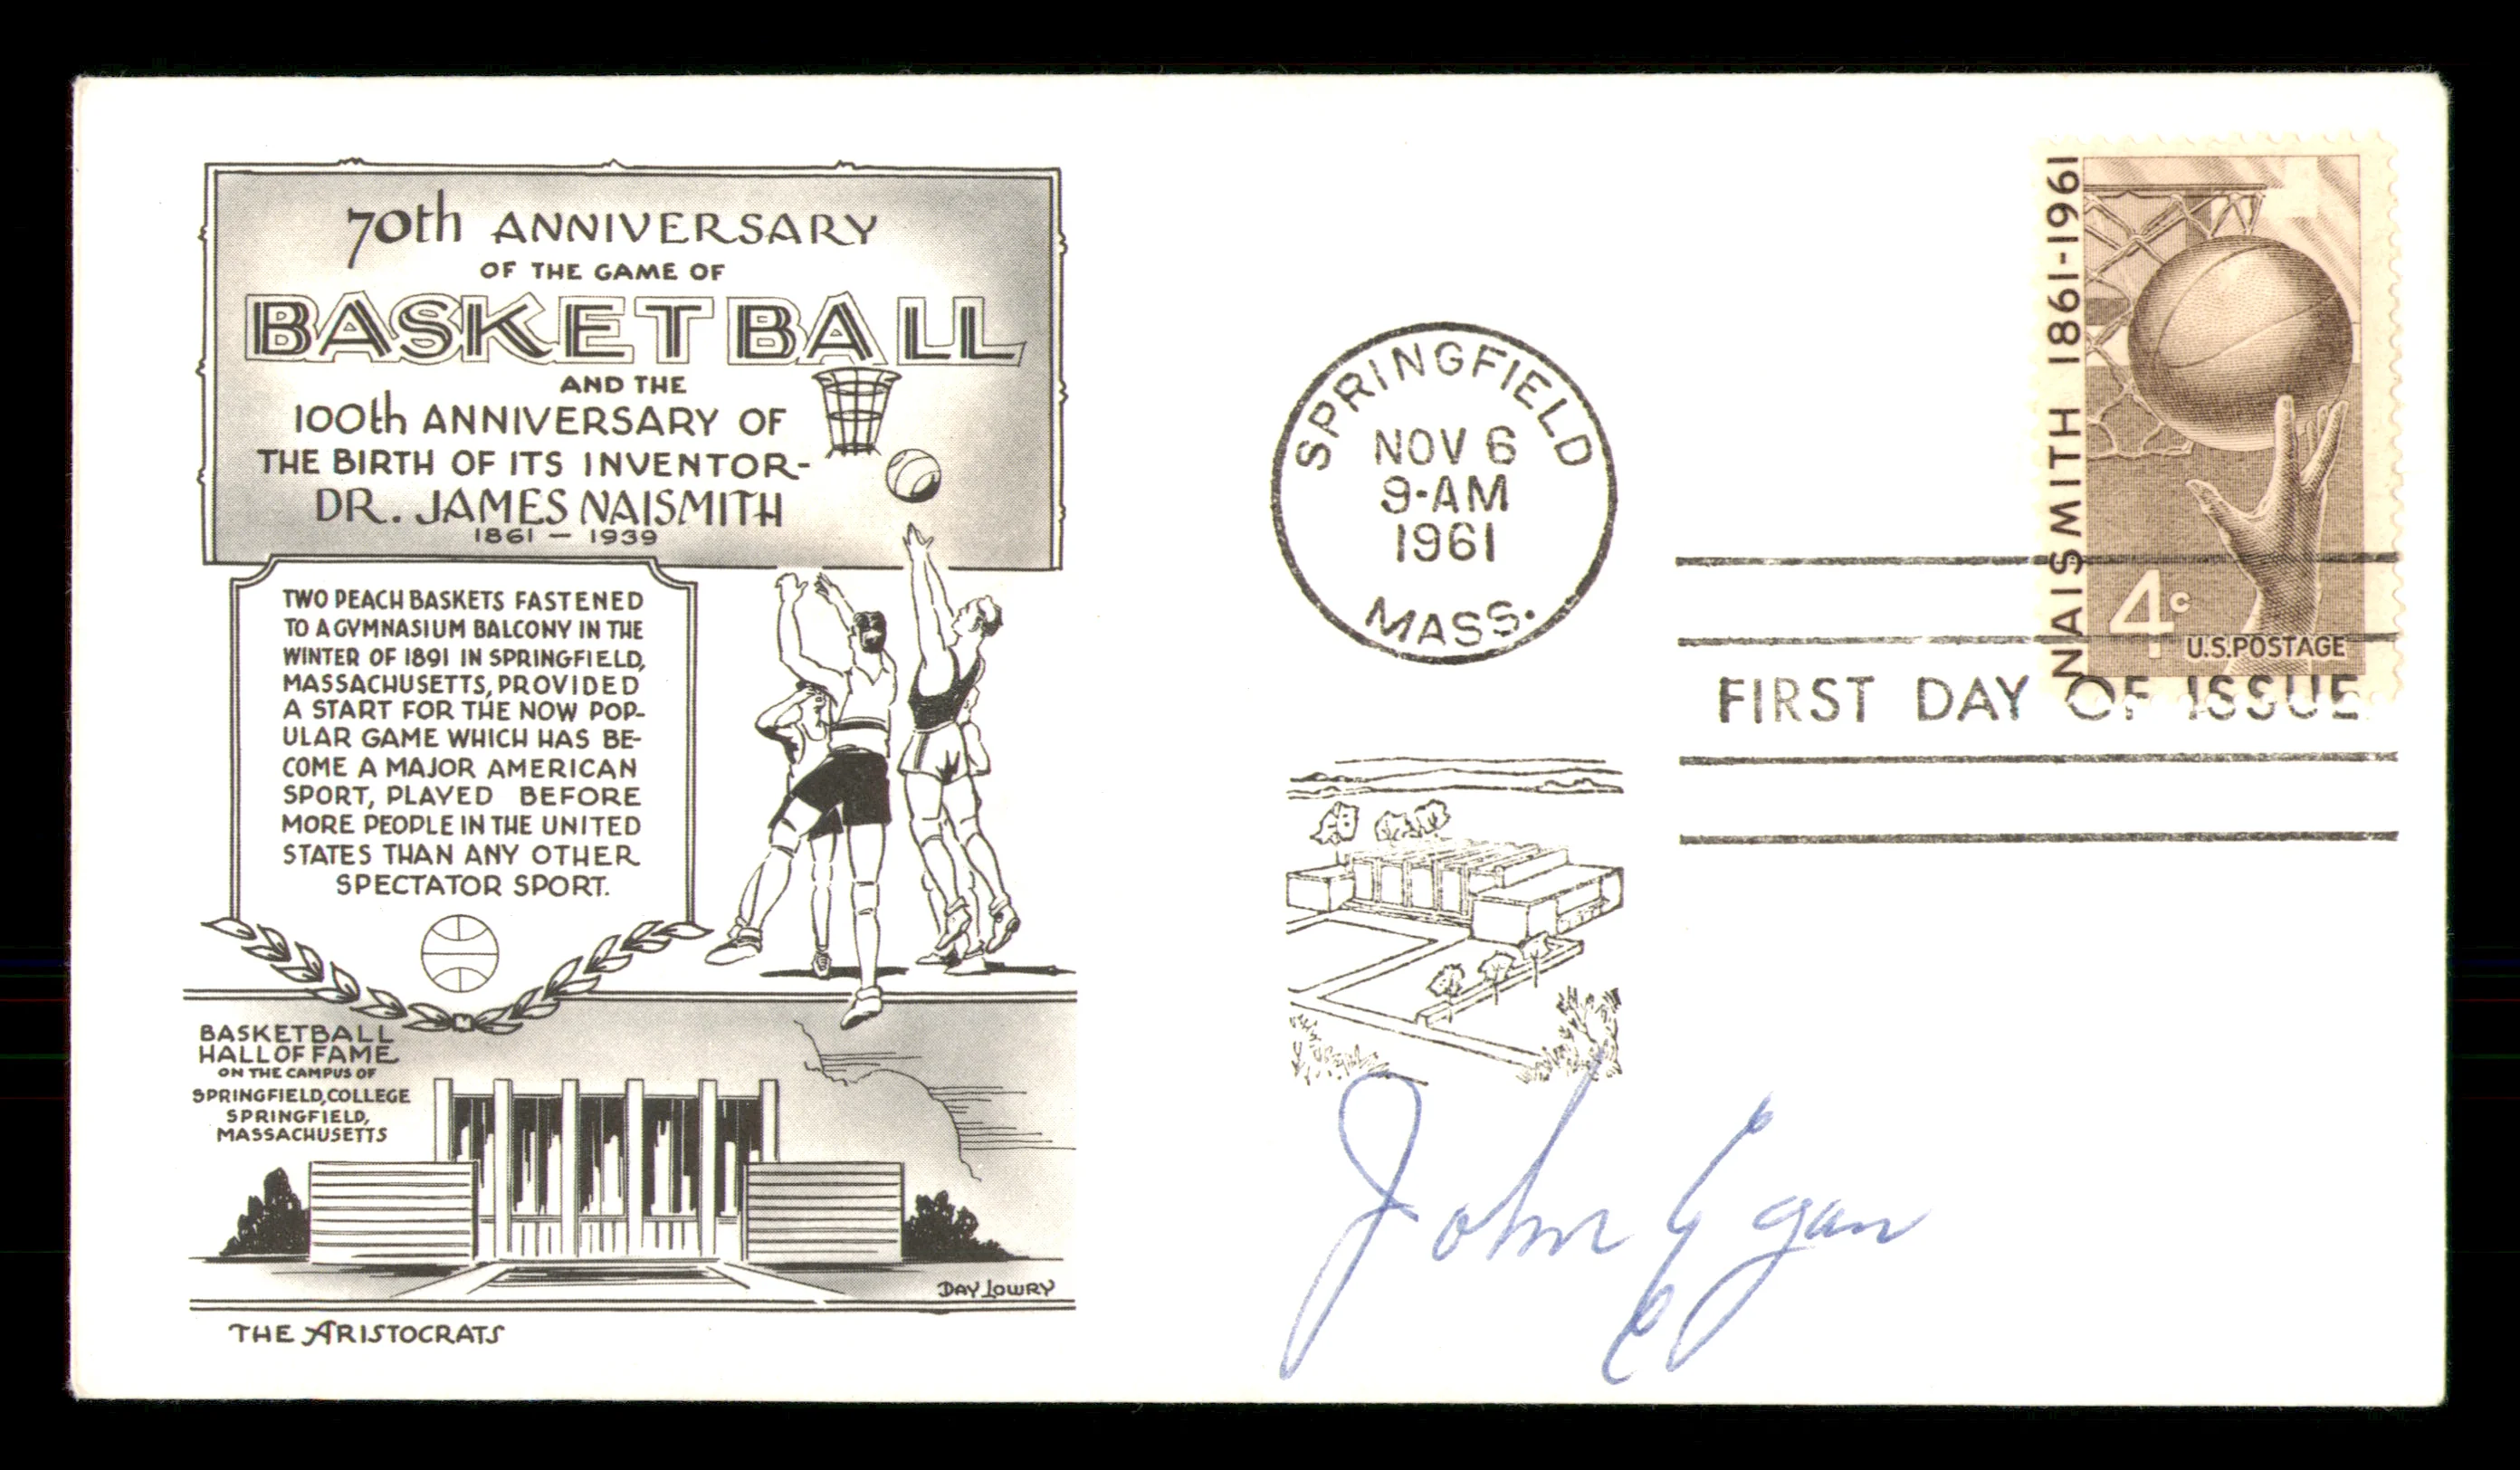 70th ANNIVERSARY
OF THE GAME OF
BASKETBALL
AND THE
100th ANNIVERSARY OF
THE BIRTH OF ITS INVENTOR-
DR. JAMES NAISMITH
1861 — 1939
TWO PEACH BASKETS FASTENED
TO A GYMNASIUM BALCONY IN THE
WINTER OF 1891 IN SPRINGFIELD,
MASSACHUSETTS, PROVIDED
A START FOR THE NOW POP-
ULAR GAME WHICH HAS BE-
COME A MAJOR AMERICAN
SPORT, PLAYED BEFORE
MORE PEOPLE IN THE UNITED
STATES THAN ANY OTHER
SPECTATOR SPORT.
BASKETBALL
HALL OF FAME
ON THE CAMPUS OF
SPRINGFIELD, COLLEGE
SPRINGFIELD,
MASSACHUSETTS
DAY LOWRY
THE ARISTOCRATS
SPRINGFIELD
NOV 6
9-AM
1961
MASS.
NAISMITH 1861-1961
4c
U.S. POSTAGE
FIRST DAY OF ISSUE
John Egan